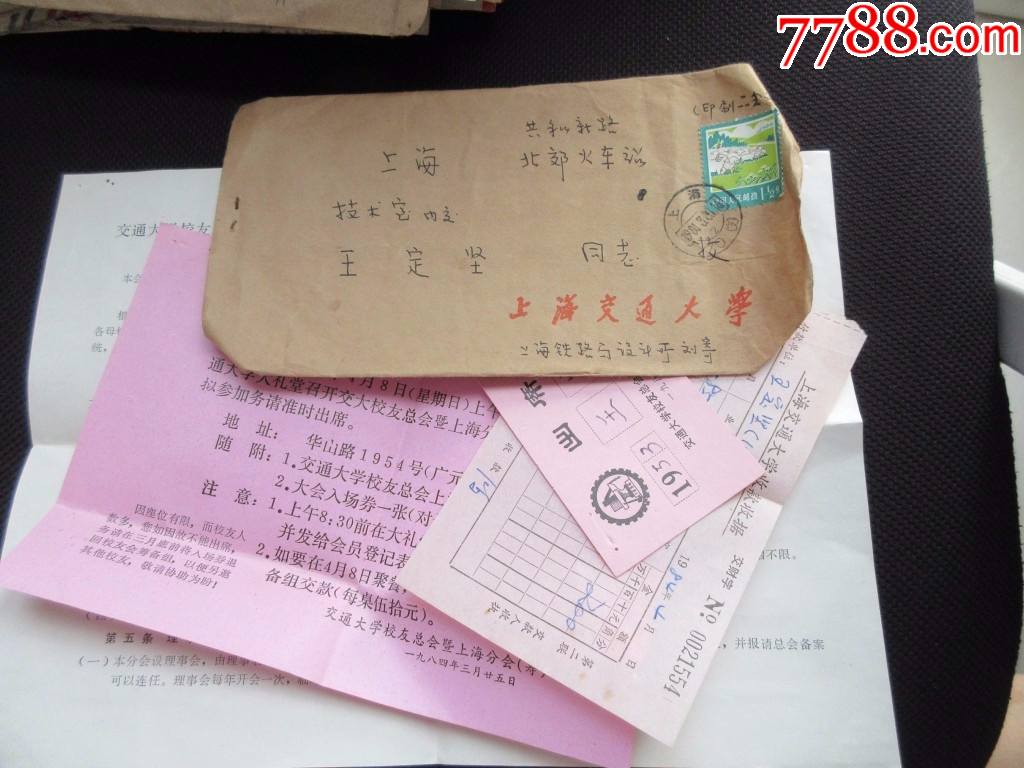 7788.com
(印刷二全
共和新路
上海 北郊火车站
技术室内交
王定坚 同志 收
上海交通大学
上海
中国人民邮政
交通大学校友
本会
各母校
统，
月8日(星期日)上午
通大学大礼堂召开交大校友总会暨上海分
拟参加务请准时出席。
地址： 华山路1954号(广元
随附：1.交通大学校友总会上
2.大会入场券一张(对
注意：1.上午8:30前在大礼
并发给会员登记表
2.如要在4月8日聚餐，
备组交款(每桌伍拾元)。
交通大学校友总会暨上海分会(筹)
一九八四年三月廿五日
因座位有限，而校友人
数多，您如因故不能出席，
务请在三月底前将入场券退
回校友会筹备组，以便另邀
其他校友，敬请协助为盼！
1953
交通大学校友总会
上海交通大学收款收据
交财字 № 0021554
交款人收执
第二联
收款
金额
万千百十元角分
1984年4月 日
200
不限。
，并报请总会备案
第五条 理
(一)本分会设理事会，由理事
可以连任。理事会每年开会一次，